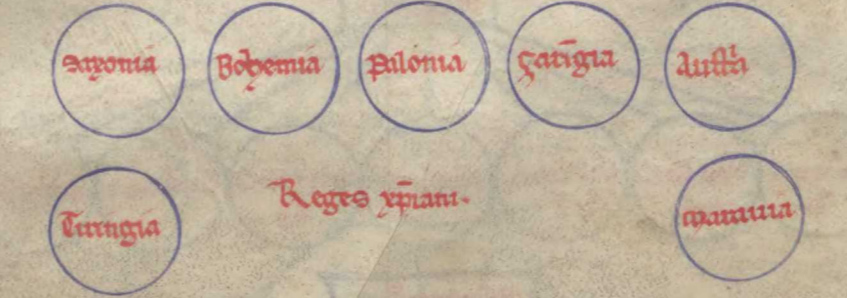 Saxonia Bohemia Palonia Austria
Turingia Reges xp̄iani. Marauia